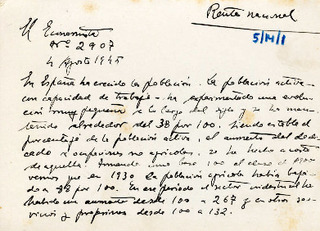 Renta nacional
5/14/1
El Economista
Nº 2907
4 Agosto 1945
En España ha crecido la población. La población activa
con capacidad de trabajo - ha experimentado una evolu
ción muy pequeña a lo largo del siglo y se ha man
tenido alrededor del 38 por 100. Siendo estable el
porcentaje de la población activa, el aumento del dedi
cado a ocupaciones no agrícolas, se ha hecho a costa
de aquella. Tomando como base 100 el censo de 1900
vemos que en 1930 la población agrícola había baja
do a 88 por 100. En ese período el sector industrial ha
habido un aumento desde 100 a 267 y en otros ser
vicios y profesiones desde 100 a 132.